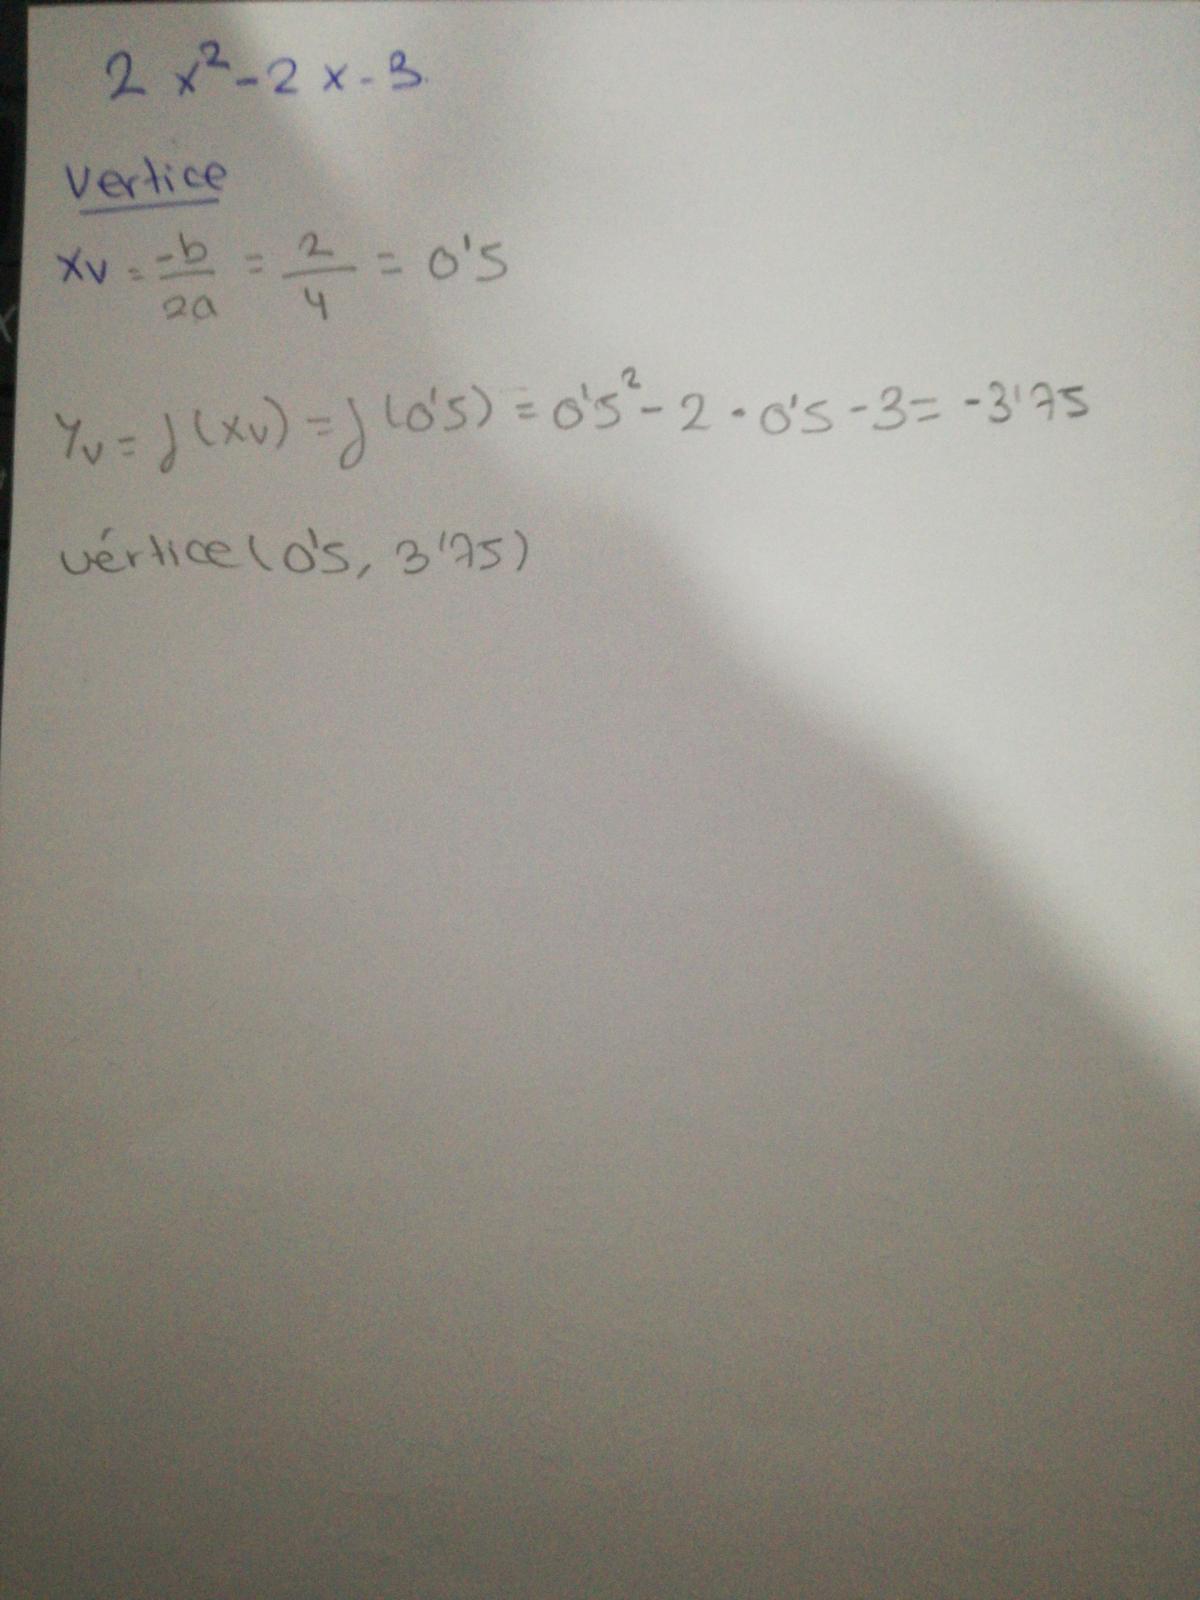 2 x² - 2 x - 3
Vertice
xv = -b/2a = 2/4 = 0'5
Yv = f(xv) = f(0'5) = 0'5² - 2 · 0'5 - 3 = -3'75
vértice (0'5, 3'75)